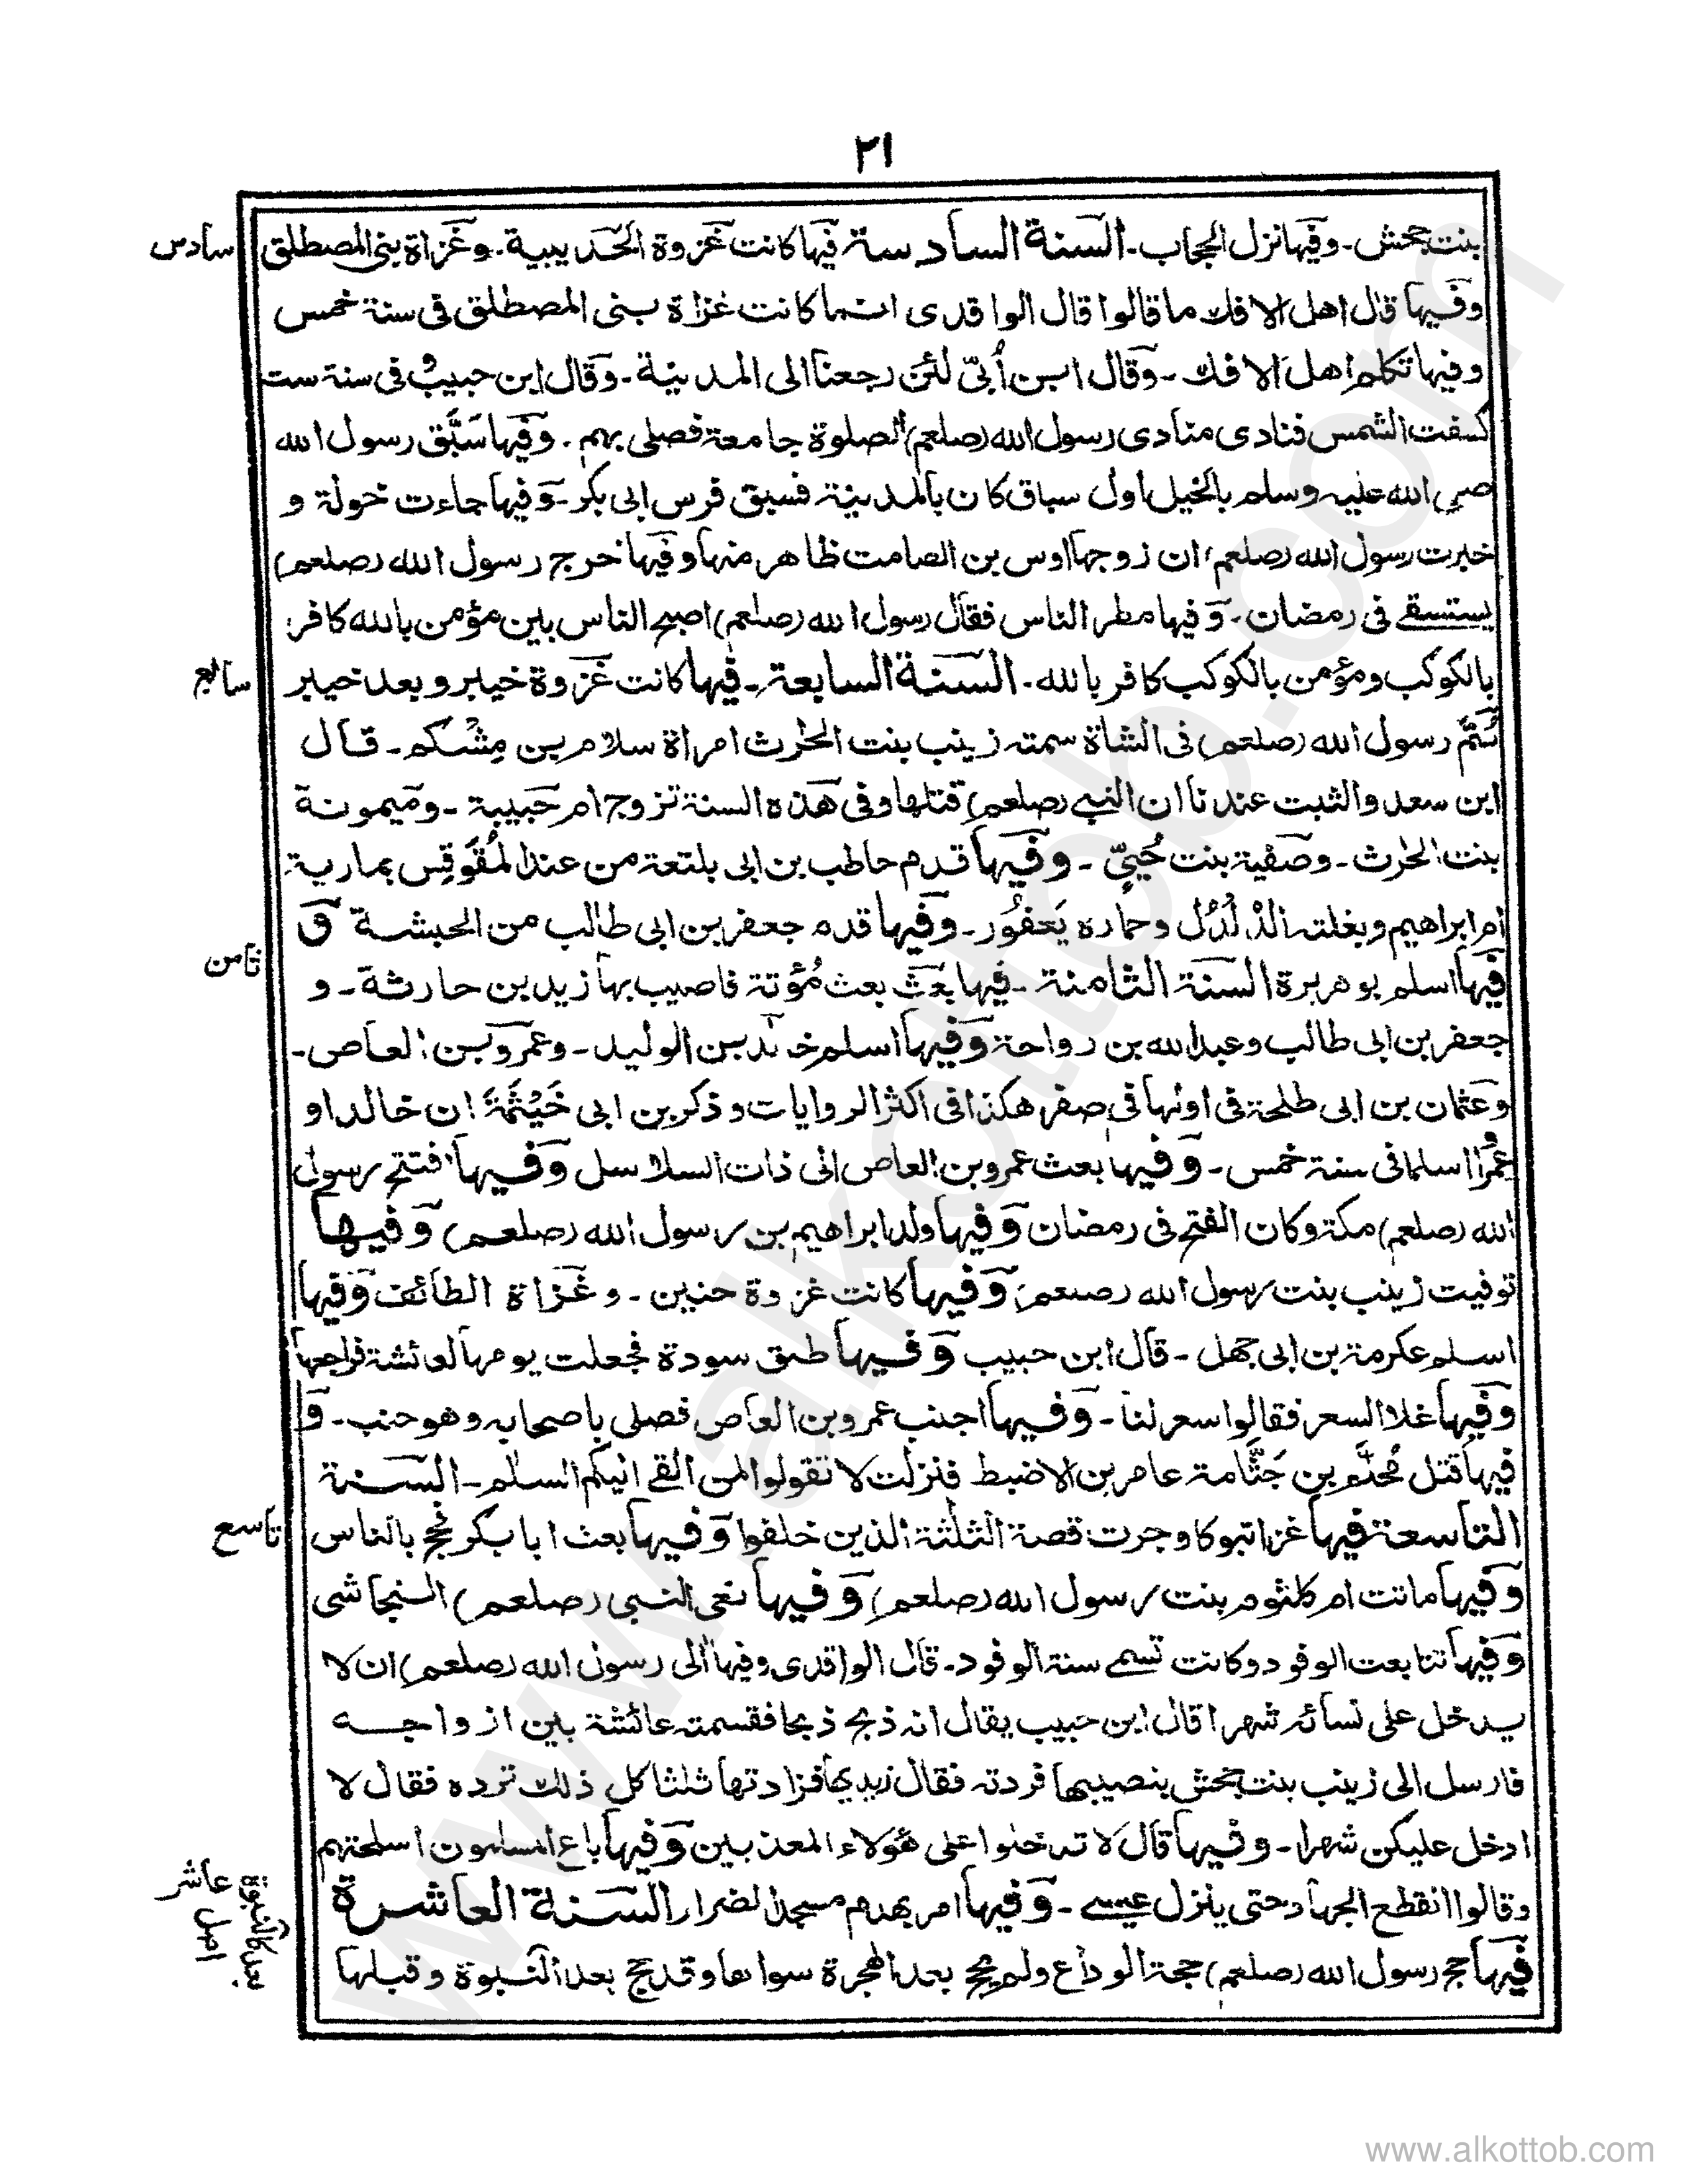 ٢١
بنت جحش ۔ وفيها نزل الحجاب ۔ السنة السادسة فيها كانت غزوة الحديبية ۔ وغزاة بنى المصطلق
سادس
وفيها قال اهل الافك ما قالوا قال الواقدى انما كانت غزاة بنى المصطلق فى سنة خمس
وفيها تكلم اهل الافك ۔ وقال ابن اُبىّ لئن رجعنا الى المدينة ۔ وقال ابن حبيب وفى سنة ست
كسفت الشمس فنادى منادى رسول الله (صلعم) الصلوة جامعة فصلى بهم ۔ وفيها سَبَّق رسول الله
صلى الله عليه وسلم بالخيل اول سباق كان بالمدينة فسبق فرس ابى بكر ۔ وفيها جاءت خولة و
خبرت رسول الله (صلعم) ان زوجها اوس بن الصامت ظاهر منها وفيها خرج رسول الله (صلعم)
يستسقے فى رمضان ۔ وفيها مطر الناس فقال رسول الله (صلعم) اصبح الناس بين مؤمن بالله كافر
بالكوكب ومؤمن بالكوكب كافر بالله ۔ السنة السابعة ۔ فيها كانت غزوة خيبر وبعد خيبر
سابع
سُمَّ رسول الله (صلعم) فى الشاة سمته زينب بنت الحٰرث امراة سلام بن مِشْكم ۔ قال
ابن سعد والثبت عندنا ان النبے (صلعم) قتلها وفى هذه السنة تزوج ام حبيبة ۔ وميمونة
بنت الحٰرث ۔ وصفية بنت حُيىّ ۔ وفيها قدم حاطب بن ابى بلتعة من عند المُقَوقِس بمارية
ام ابراهيم وبغلته الدُلدُل وحماره يَعفُور ۔ وفيها قدم جعفر بن ابى طالب من الحبشة و
فيها اسلم بوهريرة السنة الثامنة ۔ فيها بَعَثَ بعث مُؤتة فاصيب بها زيد بن حارثة ۔ و
ثامن
جعفر بن ابى طالب وعبد الله بن رواحة وفيها اسلم خالد بن الوليد ۔ وعمرو بن العاص ۔
وعثمان بن ابى طلحة فى اولها فى صفر هكذا فى اكثر الروايات وذكر بن ابى خَيْثَمَة ان خالدا و
عمرًا اسلما فى سنة خمس ۔ وفيها بعث عمرو بن العاص الى ذات السلاسل وفيها افتتح رسول
الله (صلعم) مكة وكان الفتح فى رمضان وفيها ولد ابراهيم بن رسول الله (صلعم) وفيها
توفيت زينب بنت رسول الله (صلعم) وفيها كانت غزوة حنين ۔ وغزاة الطائف وفيها
اسلم عكرمة بن ابى جهل ۔ قال ابن حبيب وفيها طلق سودة فجعلت يومها لعائشة فراجعها
وفيها غلا السعر فقالوا سعر لنا ۔ وفيها اجنب عمرو بن العاص فصلى باصحابه وهو جنب ۔ و
فيها قتل مُحلَّم بن جَثَّامة عامر بن الاضبط فنزلت لا تقولوا لمن القے اليكم السلٰم ۔ السنة
التاسعة فيها غزا تبوكا وجرت قصة الثلثة الذين خلفوا وفيها بعث ابا بكر فحج بالناس
تاسع
وفيها ماتت ام كلثوم بنت رسول الله (صلعم) وفيها نعى النبى (صلعم) النجاشى
وفيها تتابعت الوفود وكانت تسمے سنة الوفود ۔ قال الواقدى وفيها اٰلى رسول الله (صلعم) ان لا
يدخل على نسائه شهرا قال ابن حبيب يقال انه ذبح ذبحا فقسمته عائشة بين ازواجه
فارسل الى زينب بنت جحش بنصيبها فردته فقال زيديها فزادتها ثلثا كل ذلك ترده فقال لا
ادخل عليكن شهرا ۔ وفيها قال لا تدخلوا على هؤلاء المعذبين وفيها باع المسلمون اسلحتهم
وقالوا انقطع الجهاد حتى ينزل عيسے ۔ وفيها امر بهدم مسجد الضرار السنة العاشرة
عاشر
فيها حج رسول الله (صلعم) حجة الوداع ولم يحج بعد الهجرة سواها وقد حج بعد النبوة وقبلها
اصل
www.alkottob.com